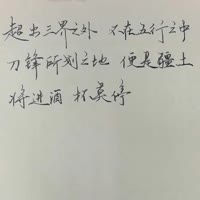 超出三界之外 不在五行之中
刀锋所划之地 便是疆土
将进酒 杯莫停